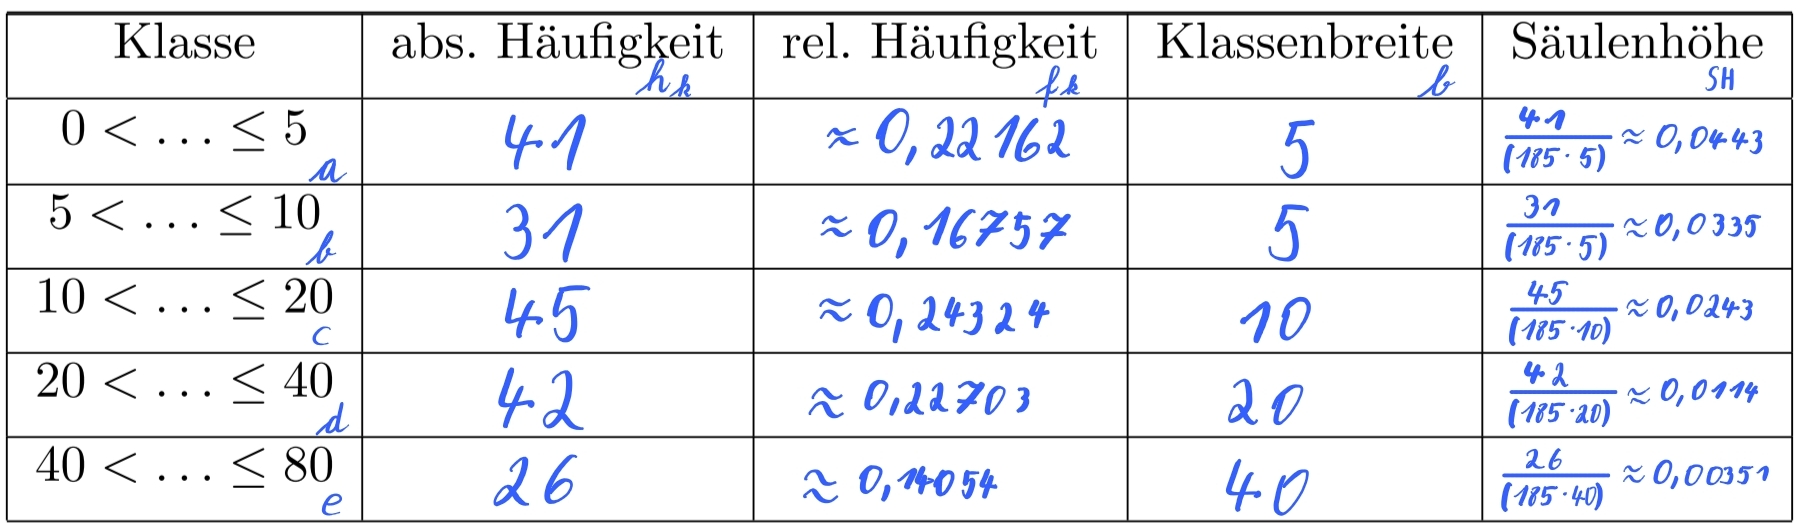 Klasse abs. Häufigkeit rel. Häufigkeit Klassenbreite Säulenhöhe
hk fk b SH
0 < ... ≤ 5 a 41 ≈ 0,22162 5 41/(185·5) ≈ 0,0443
5 < ... ≤ 10 b 31 ≈ 0,16757 5 31/(185·5) ≈ 0,0335
10 < ... ≤ 20 c 45 ≈ 0,24324 10 45/(185·10) ≈ 0,0243
20 < ... ≤ 40 d 42 ≈ 0,22703 20 42/(185·20) ≈ 0,0114
40 < ... ≤ 80 e 26 ≈ 0,14054 40 26/(185·40) ≈ 0,00351